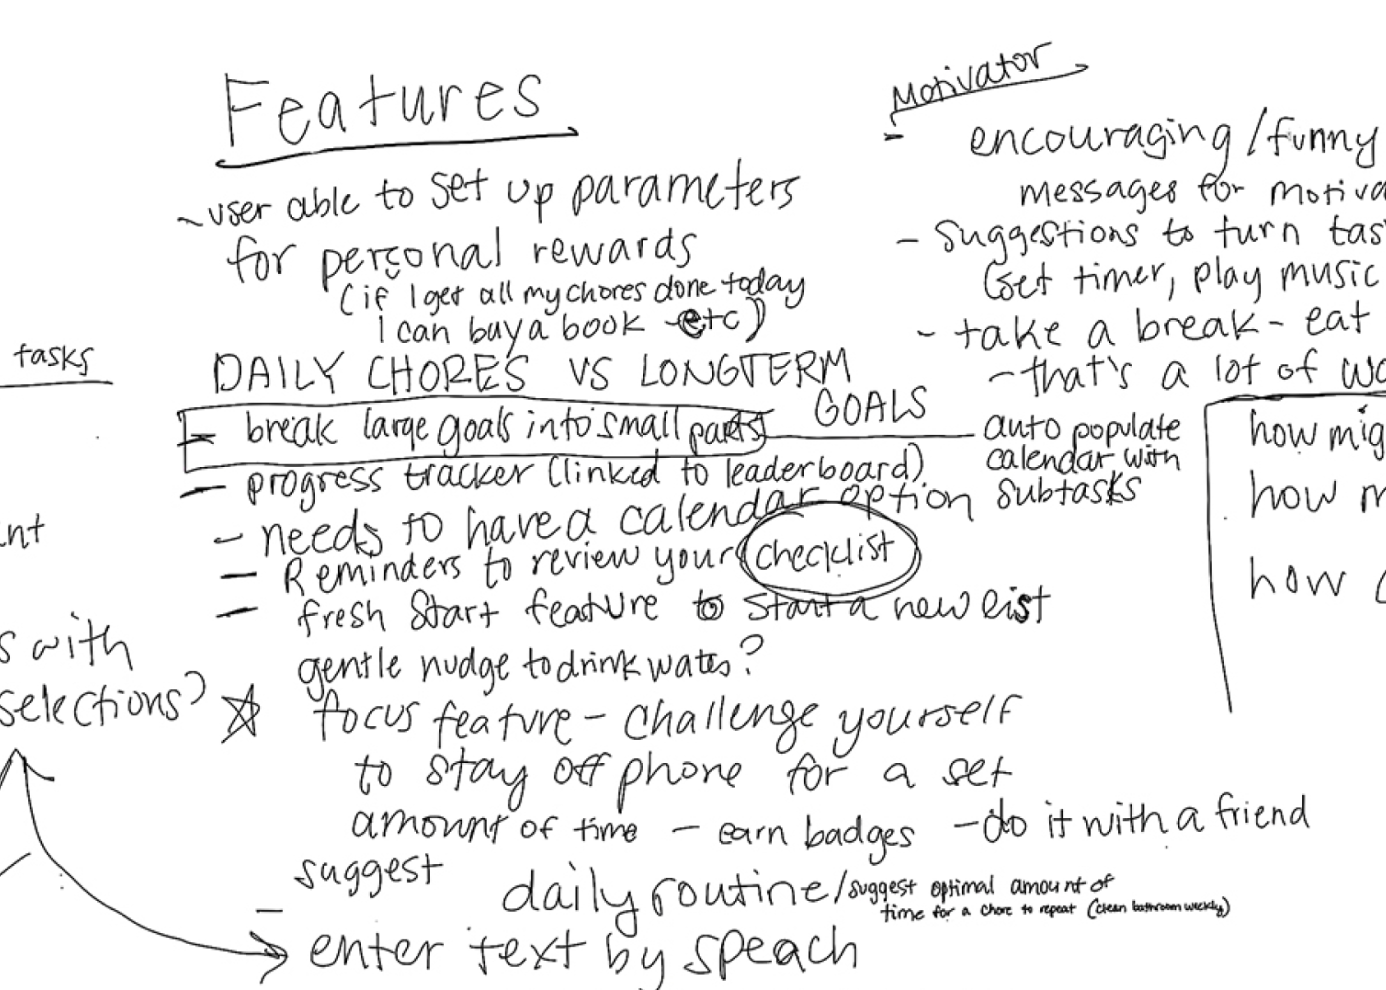 Features
~user able to set up parameters
for personal rewards
(if I get all my chores done today
I can buy a book etc)
DAILY CHORES VS LONGTERM
GOALS
- break large goals into small parts
auto populate
calendar with
subtasks
- progress tracker (linked to leaderboard)
- needs to have a calendar option
- Reminders to review your checklist
- fresh start feature to start a new list
gentle nudge to drink water?
focus feature - challenge yourself
to stay off phone for a set
amount of time - earn badges - do it with a friend
- suggest daily routine/suggest optimal amount of
time for a chore to repeat (clean bathroom weekly)
enter text by speach
Motivator
- encouraging/funny
messages for motiva
- suggestions to turn tas
(set timer, play music
- take a break - eat
- that's a lot of wo
how mig
how m
how
tasks
nt
s with
selections?